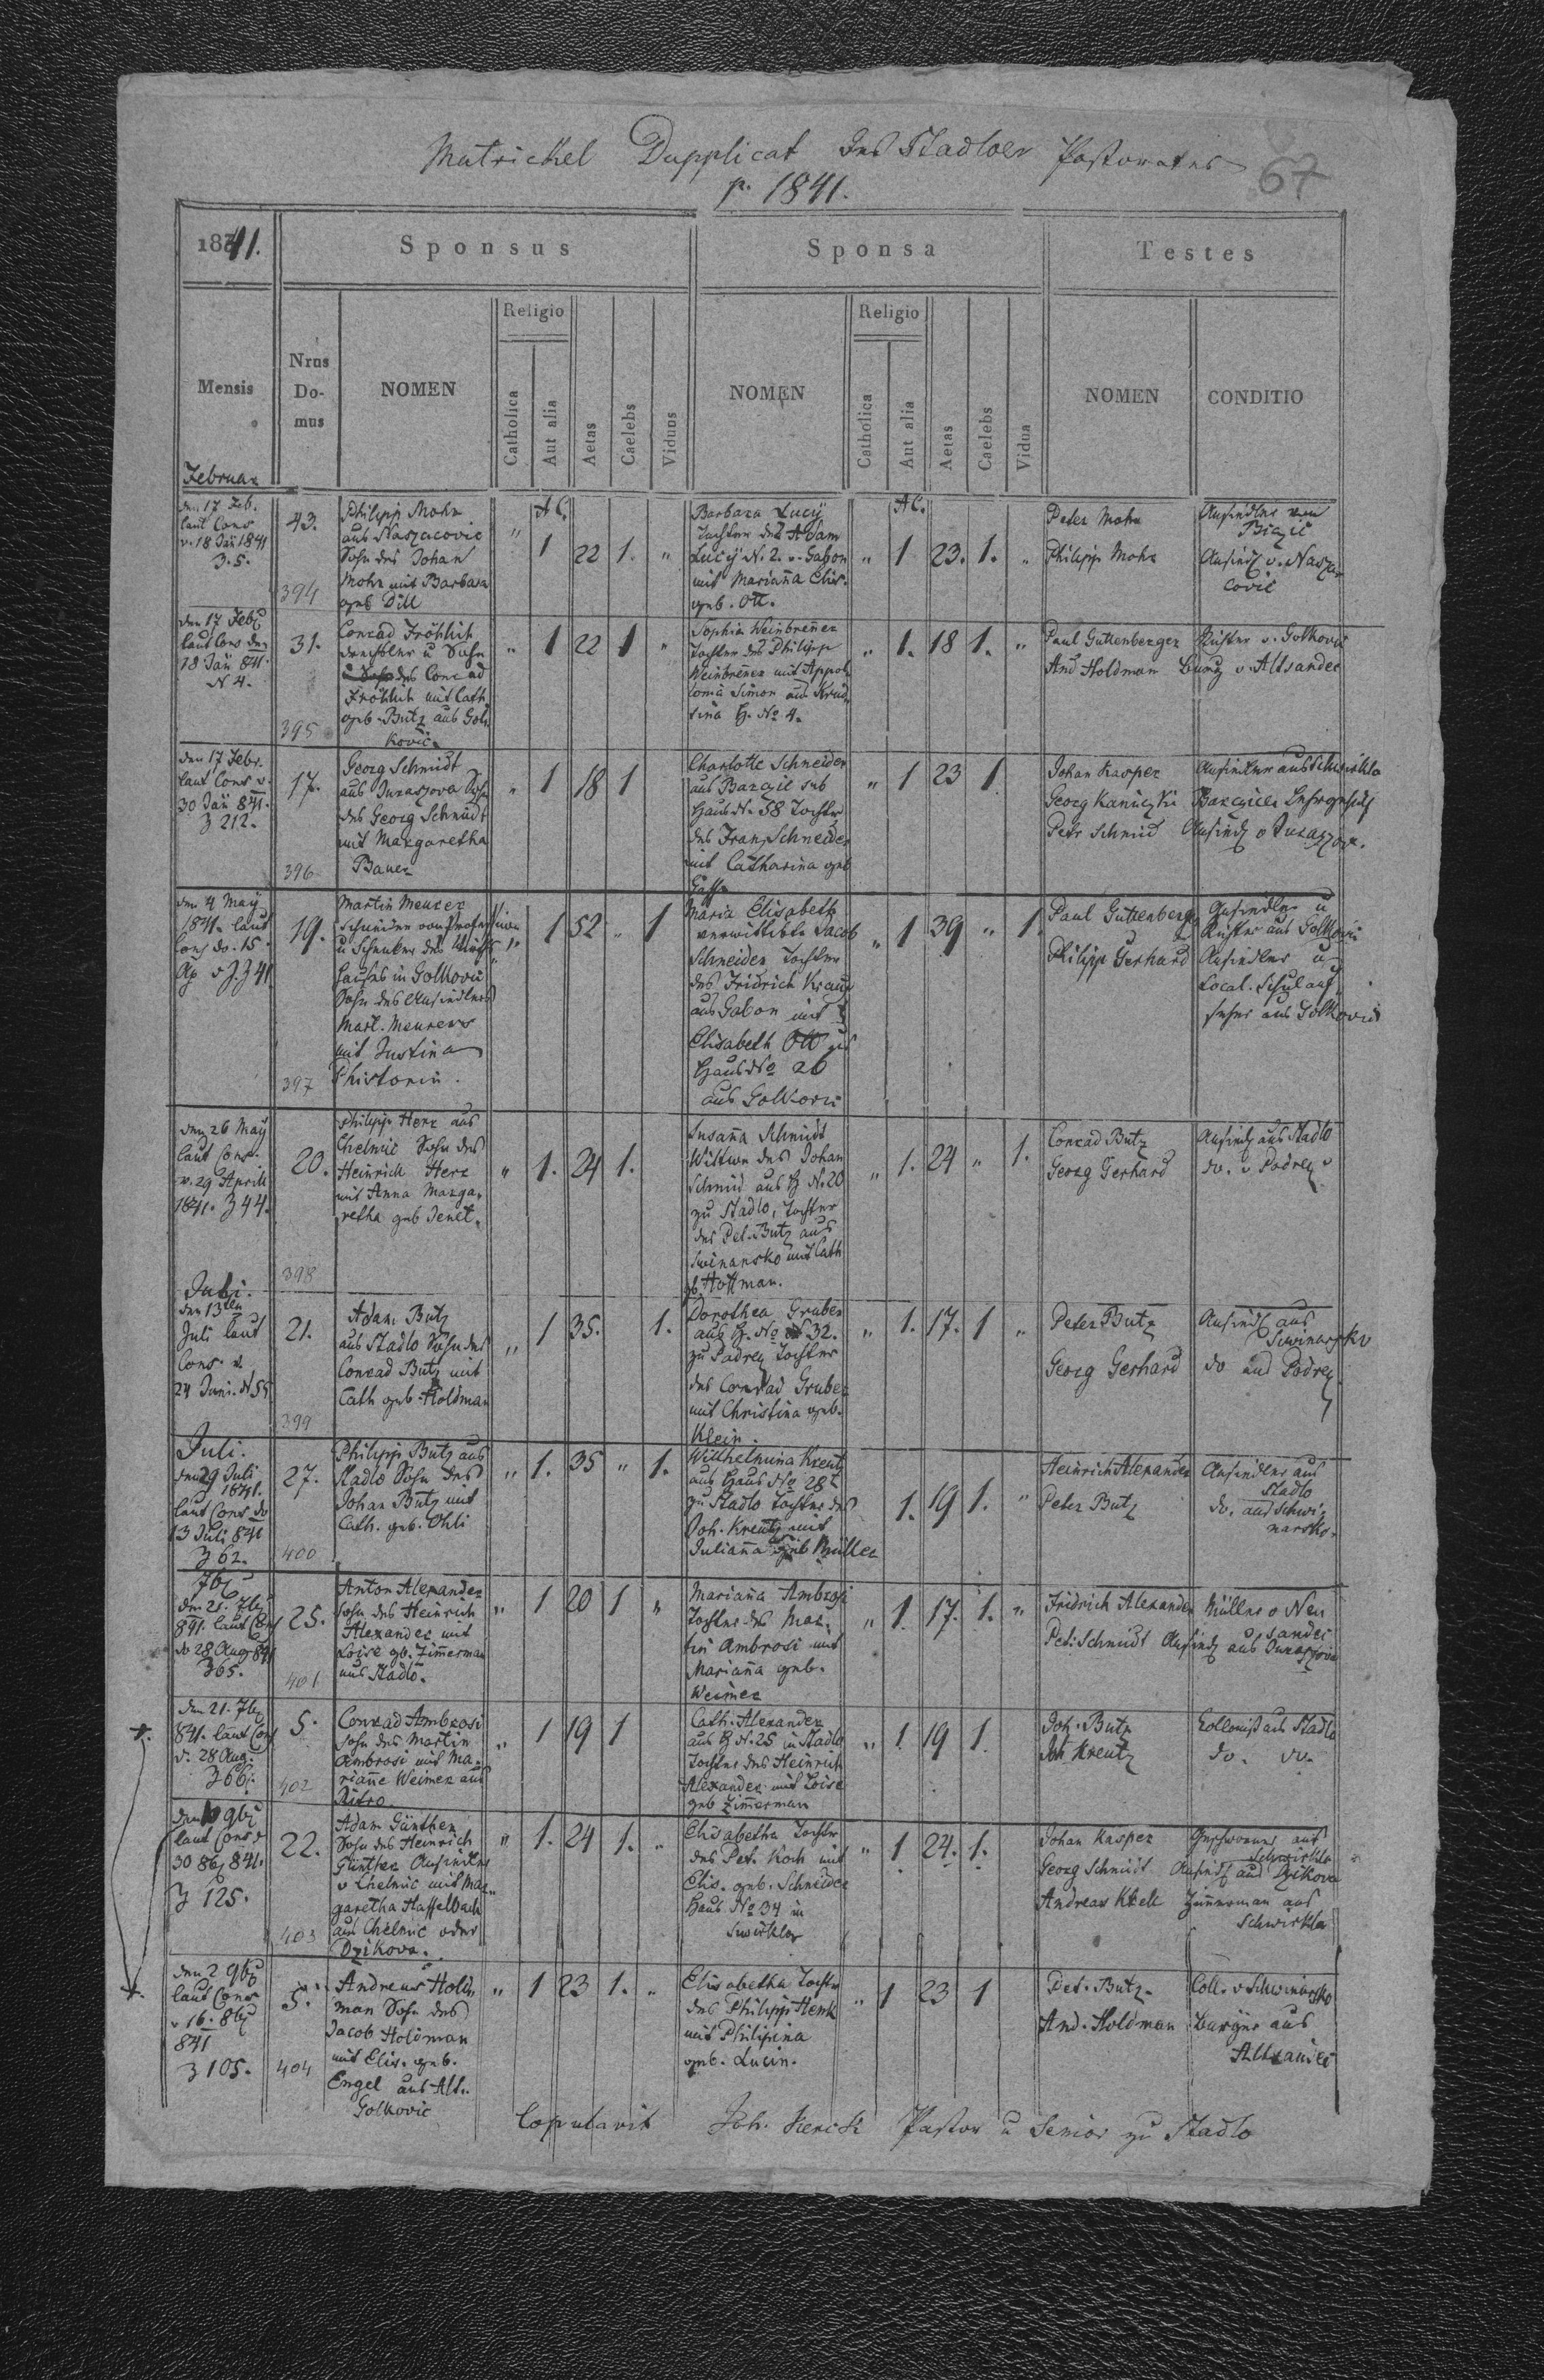 Matrickel Dupplicat des Stadloer Pastorates
p. 1841.
67
1841.
Sponsus
Sponsa
Testes
Mensis
Nrus Do- mus
NOMEN
Religio
Catholica
Aut alia
Aetas
Caelebs
Viduus
NOMEN
Religio
Catholica
Aut alia
Aetas
Caelebs
Vidua
NOMEN
CONDITIO
Februar
den 17 Feb.
laut Cons
v. 18 Jan̄ 1841
3. 5.
43.
394
Philipp Mohr
aus Naszacovic
Sohn des Johan
Mohr mit Barbara
geb Dill
"
A C.
1
22
1.
"
Barbara Lucÿ
Tochter des Adam
Lucÿ N. 2. v. Gabon
mit Marian̄a Elis.
geb. Ott.
"
AC.
1
23.
1.
"
Peter Mohr
Philipp Mohr
Ansiedler von
Biczic
Ansied v. Nasza
covic
den 17 Feb
laut Cons den
18 Jan̄ 841.
N 4.
31.
395
Conrad Fröhlich
u Sohn
des Conrad
Fröhlich mit Cath
geb. Butz aus Gol
kovic.
"
1
22
1
"
Sophia Weinbren̄er
Tochter des Philipp
Weinbren̄er mit Appol
lonia Simon aus
H. No 4.
"
1.
18
1.
"
Paul Guttenberger
And Holdman
Richter v. Golkovic
v. Altsandec
den 17 Febr.
laut Cons v.
30 Jan̄ 841.
Z 212.
17.
396
Georg Schmidt
aus Juraszova Sohn
des Georg Schmidt
mit Margaretha
Bauer
"
1
18
1
Charlotte Schneider
aus Barczic sub
Haus N. 58 Tochter
des Franz Schneider
mit Catharina geb
"
1
23
1
Johan Kasper
Georg
Petr Schmid
Ansiedler aus
Barczicer
Ansied v Juraszova.
den 4 May
1841. laut
Cons do. 15.
Ap v Z 41
19.
397
Martin Meurer
Schneider von Profession
u Schenker des
Hauses in Golkovic
Sohn des Ansiedlers
Mart. Meurers
mit Justina
"
1
52
"
1
Maria Elisabeth
verwittibte Jacob
Schneider Tochter
des Fridrich Kraus
aus Gabon mit
Elisabeth Ott
Haus No 26
aus Golkovic
"
1
39
"
1.
Paul Guttenberg
Philipp Gerhard
Ansiedler u
Richter aus Golkovic
Ansiedler u
Local. Schulauf
seher aus Golkovic
den 26 May
laut Cons.
v. 29 Aprill
1841. Z 44.
20.
398
Philipp Herz aus
Chelmic Sohn des
Heinrich Herz
mit Anna Marga-
retha geb Jenet.
"
1.
24
1.
Susan̄a Schmidt
Wittwe des Johan
Schmid aus H N. 20
zu Stadlo, Tochter
des Pet. Butz aus
Swinarsko mit Cath
gb Hoffman.
"
1.
24
"
1.
Conrad Butz
Georg Gerhard
Ansied aus Stadlo
do. v Podrez
Juli.
den 13ten
Juli laut
Cons. v.
24 Juni. N 55
21.
399
Adam Butz
aus Stadlo Sohn des
Conrad Butz mit
Cath geb. Holdman
"
1
35.
1.
Dorothea Gruber
aus H. No 32.
zu Podrez Tochter
des Conrad Gruber
mit Christina geb.
Klein.
"
1.
17.
1
"
Peter Butz
Georg Gerhard
Ansied aus
Swinarsko
do aus Podrez
Juli.
den 29 Juli
1841.
laut Cons do
13 Juli 841
Z 62.
27.
400
Philipp Butz aus
Stadlo Sohn des
Johan Butz mit
Cath. geb. Ohli
"
1.
35
"
1.
Willhelmina Kreutz
aus Haus No 28
zu Stadlo Tochter des
Joh. Kreutz mit
Julian̄a geb Müller
1.
19
1.
"
Heinrich Alexander
Peter Butz
Ansiedler aus
Stadlo
do. aus Schwi-
narsko.
7b
den 21. 7b
841. laut Cons
do 28 Aug 841
Z 65.
25.
401
Anton Alexander
Sohn des Heinrich
Alexander mit
Loise gb. Zim̄erman
aus Stadlo.
"
1
20
1
"
Marian̄a Ambrosi
Tochter des Mar-
tin Ambrosi mit
Marian̄a geb.
Weimer
"
1.
17.
1.
"
Fridrich Alexander
Pet: Schmidt
Müller v Neu
Sandec
Ansied aus Juraszova
den 21. 7b
841. laut Cons
v. 28 Aug.
Z 66.
5.
402
Conrad Ambrosi
Sohn des Martin
Ambrosi mit Ma-
rian̄e Weimer aus
Ritro.
"
1
19
1
Cath. Alexander
aus H N. 25 in Stadlo
Tochter des Heinrich
Alexander mit Loise
geb Zim̄erman
"
1.
19
1.
Joh. Butz
Joh Kreutz
Collonist aus Stadlo
do. do.
den 9b
laut Cons v
30 8b 841.
Z 125.
22.
403
Adam Günther
Sohn des Heinrich
Günther Ansiedler
v Chelmic mit Mar-
garetha Haffelbach
aus Chelmic oder
Dzikova.
"
1.
24
1.
"
Elisabetha Tochter
des Pet. Koch mit
Elis. geb. Schneider
Haus No 34 in
Swirkla
"
1
24.
1.
Johan Kasper
Georg Schmidt
Andreas
Geschworner aus
Schwirkla
Ansied aus Dzikova
Zim̄erman aus
Schwirkla
den 2 9b
laut Cons
v 16. 8b
841
Z 105.
5.
404
Andreas Hold-
man Sohn des
Jacob Holdman
mit Elis. geb.
Engel aus Alt-
Golkovic
"
1
23
1.
"
Elisabetha Tochter
des Philipp Henk
mit Philipina
geb. Lucin.
"
1
23
1
Pet. Butz.
And. Holdman
Coll. v Schwinarsko
Burger aus
Altsandec
Copulavit Joh. Pastor u Senior zu Stadlo